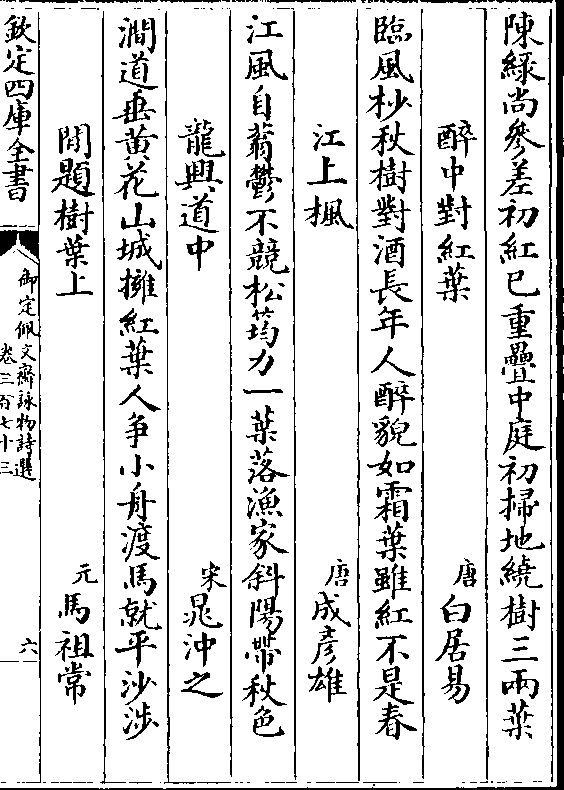 陳緑尚參差初紅已重疊中庭初掃地繞樹三兩葉
醉中對紅葉 唐白居易
臨風杪秋樹對酒長年人醉貌如霜葉雖紅不是春
江上楓 唐成彥雄
江風自蓊鬱不競松筠力一葉落漁家斜陽帶秋色
龍興道中 宋晁沖之
澗道垂黄花山城擁紅葉人争小舟渡馬就平沙涉
閒題樹葉上 元馬祖常
欽定四庫全書
御定佩文齋詠物詩選
卷三百七十三
六